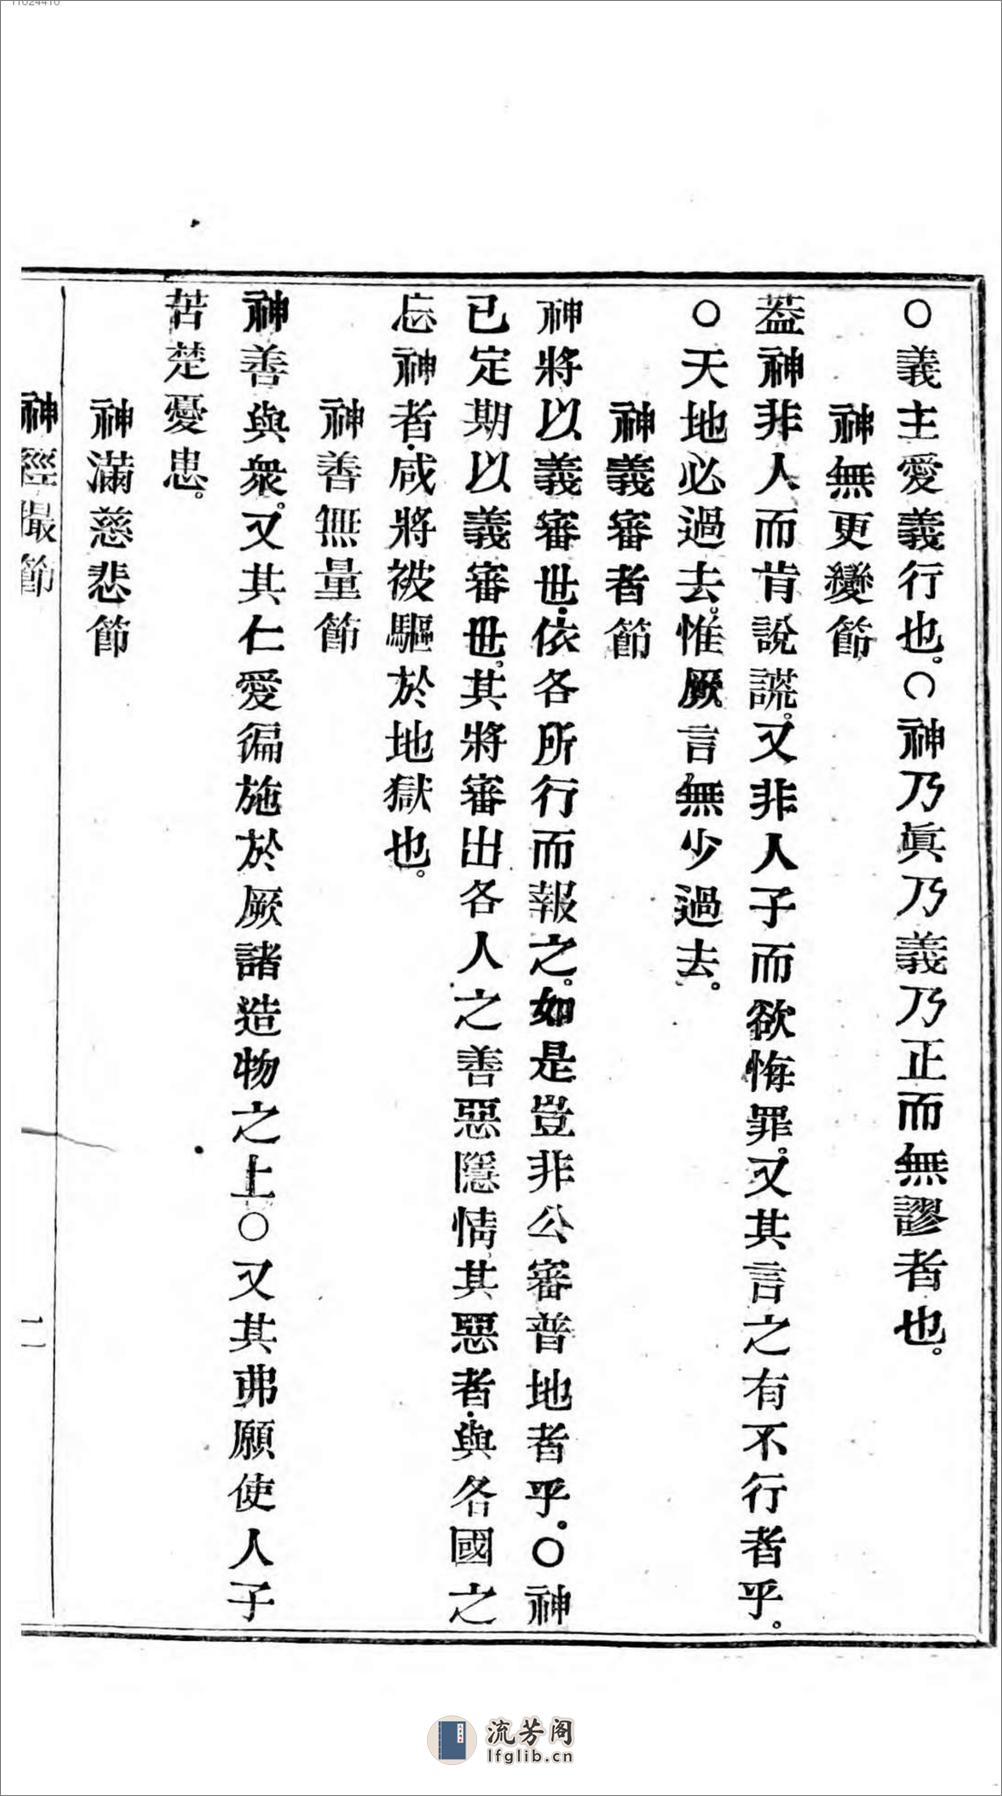 ○義主愛義行也。○神乃眞乃義乃正而無謬者也。
神無更變節
葢神非人而肯說謊。又非人子而欲悔罪。又其言之有不行者乎。
○天地必過去。惟厥言無少過去。
神義審者節
神將以義審世。依各所行而報之。如是豈非公審普地者乎。○神
已定期以義審世。其將審出各人之善惡隱情。其惡者。與各國之
忘神者。咸將被驅於地獄也。
神善無量節
神善與衆。又其仁愛徧施於厥諸造物之上○又其弗願使人子
苦楚憂患。
神滿慈悲節
神經撮節
二
流芳阁
lfglib.cn